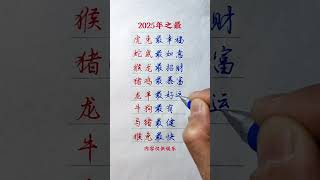 2025年之最
虎兔最幸福
蛇鼠最如意
猴龙最招财
猪鸡最暴富
龙羊最好运
牛狗最有
马猪最健
猴兔最快
内容仅供娱乐
猴 财
猪 富
龙 运
牛